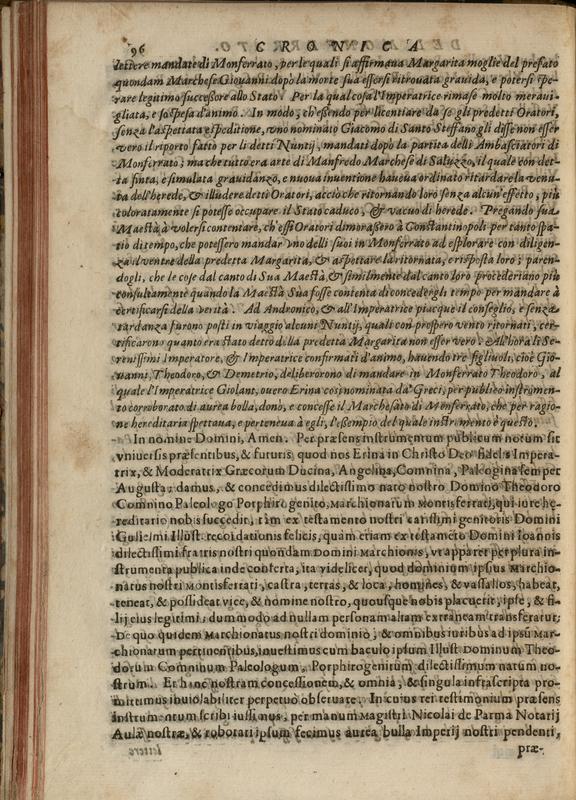 96 CRONICA
lettere mandate di Monferrato, per le quali si affirmaua Margarita moglie del prefato
quondam Marchese Giouanni dopò la morte sua essersi ritrouata grauida, e potersi spe-
rare legitimo successore allo Stato. Per la qual cosa l'Imperatrice rimase molto meraui-
gliata, e sospesa d'animo. In modo, ch'essendo per licentiare da se gli predetti Oratori,
senza l'aspettata espeditione, vno nominato Giacomo di Santo Steffano gli disse non esser
vero il riporto fatto per li detti Nuntij, mandati dopò la partita delli Ambasciatori di
Monferrato; ma che tutto era arte di Manfredo Marchese di Saluzzo, il quale con det-
ta finta, e simulata grauidanza, e nuoua inuentione haueua ordinato ritardare la venu-
ta dell'herede, & illudere detti Oratori, acciò che ritornando loro senza alcun'effetto, più
coloratamente si potesse occupare il Stato caduco, & vacuo di herede. Pregando sua
Maestà à volersi contentare, ch'essi Oratori dimorassero à Constantinopoli per tanto spa-
tio di tempo, che potessero mandar vno delli suoi in Monferrato ad esplorare con diligen-
za il ventre della predetta Margarita, & aspettare la ritornata, e risposta loro; paren-
dogli, che le cose dal canto di Sua Maestà, & similmente dal canto loro procederiano più
consultamente quando la Maestà Sua fosse contenta di concedergli tempo per mandare à
certificarsi della verità. Ad Andronico, & all'Imperatrice piacque il conseglio, e senza
tardanza furono posti in viaggio alcuni Nuntij, quali con prospero vento ritornati, cer-
tificarono quanto era stato detto della predetta Margarita non esser vero. All'hora li Se-
renissimi Imperatore, & Imperatrice confirmati d'animo, hauendo tre figliuoli, cioè Gio-
uanni, Theodoro, & Demetrio, deliberorono di mandare in Monferrato Theodoro, al
quale l'Imperatrice Giolant, ouero Erina così nominata da' Greci, per publico instromen-
to corroborato di aurea bolla, donò, e concesse il Marchesato di Monferrato, che per ragio-
ne hereditaria spettaua, e perteneua à egli, l'essempio del quale instromento è questo.
In nomine Domini, Amen. Per præsens instrumentum publicum notum sit
vniuersis præsentibus, & futuris, quod nos Erina in Christo Deo fidelis Impera-
trix, & Moderatrix Græcorum Ducina, Angelina, Comnina, Paleogina semper
Augusta: damus, & concedimus dilectissimo nato nostro Domino Theodoro
Comnino Paleologo Porphirogenito, Marchionatum Montisferrati, qui iure he-
reditario nobis succedit, tàm ex testamento nostri carissimi genitoris Domini
Gulielmi Illust. recordationis felicis, quàm etiam ex testamēto Domini Ioannis
dilectissimi fratris nostri quondam Domini Marchionis, vt apparet per plura in-
strumenta publica inde conferta, ita videlicet, quod dominium ipsius Marchio-
natus nostri Montisferrati, castra, terras, & loca, homines, & vassallos, habeat,
teneat, & possideat vice, & nomine nostro, quousque nobis placuerit, ipse, & fi-
lij eius legitimi: dummodo ad nullam personam aliam extraneam transferatur.
De quo quidem Marchionatus nostri dominio, & omnibus iuribus ad ipsū Mar-
chionatum pertinentibus, inuestimus cum baculo ipsum Illust. Dominum Theo-
dorum Comninum Paleologum, Porphirogenitum dilectissimum natum no-
strum. Et hanc nostram concessionem, & omnia, & singula infrascripta pro-
mittimus inuiolabiliter perpetuò obseruare. In cuius rei testimonium præsens
instrumentum scribi iussimus, per manum Magistri Nicolai de Parma Notarij
Aulæ nostræ, & roborari ipsum fecimus aurea bulla Imperij nostri pendenti,
præ-